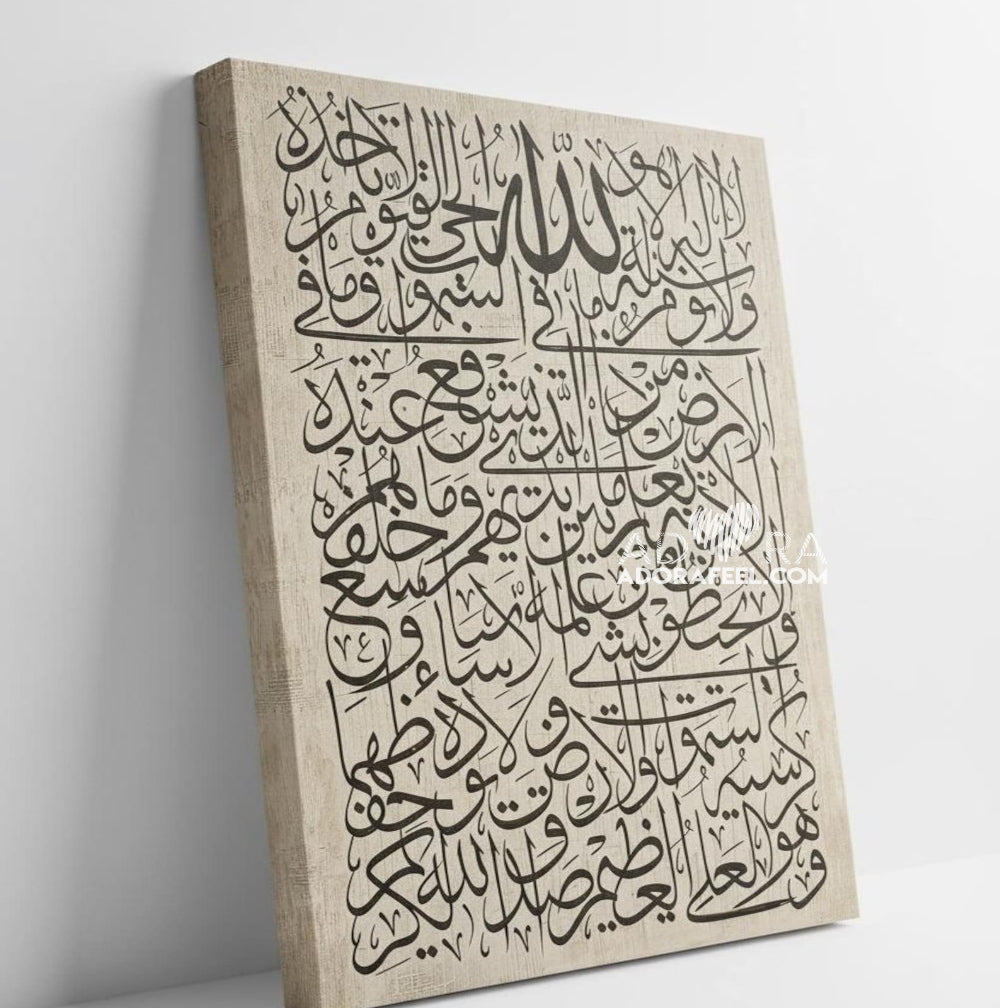 الله لا اله الا هو الحي القيوم لا تاخذه
سنة ولا نوم له ما في السموات وما في
الارض من ذا الذي يشفع عنده
الا باذنه يعلم ما بين ايديهم وما خلفهم
ولا يحيطون بشيء من علمه الا بما شاء وسع
كرسيه السموات والارض ولا يؤده حفظهما
وهو العلي العظيم صدق الله
ADORA
ADORAFEEL.COM